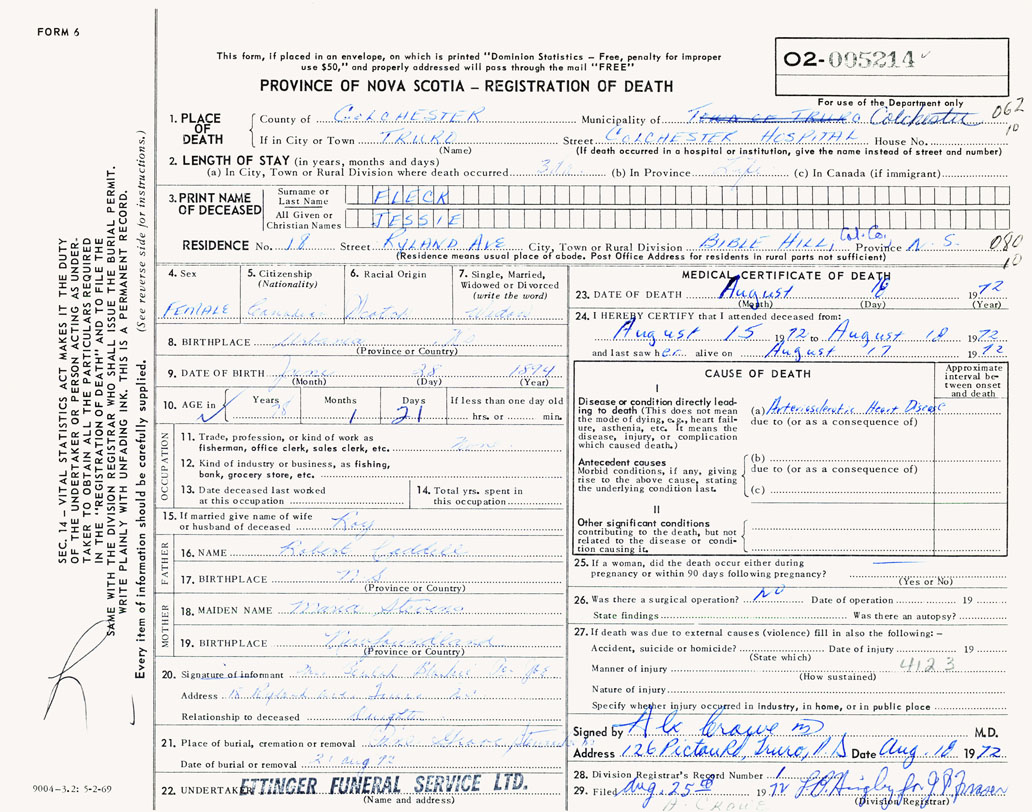 FORM 6
This form, if placed in an envelope, on which is printed "Dominion Statistics – Free, penalty for improper
use $50," and properly addressed will pass through the mail "FREE"
PROVINCE OF NOVA SCOTIA – REGISTRATION OF DEATH
O2-005214
For use of the Department only
062
10
1. PLACE OF DEATH
County of COLCHESTER Municipality of TOWN OF TRURO Colchester
If in City or Town TRURO Street COLCHESTER HOSPITAL House No.
(Name) (If death occurred in a hospital or institution, give the name instead of street and number)
2. LENGTH OF STAY (in years, months and days)
(a) In City, Town or Rural Division where death occurred (b) In Province Life (c) In Canada (if immigrant)
3. PRINT NAME OF DECEASED
Surname or Last Name FLECK
All Given or Christian Names JESSIE
RESIDENCE No. 18 Street RYLAND AVE City, Town or Rural Division BIBLE HILL, Col. Co. Province N. S. 080
10
(Residence means usual place of abode. Post Office Address for residents in rural parts not sufficient)
4. Sex
FEMALE
5. Citizenship (Nationality)
Canadian
6. Racial Origin
Scotch
7. Single, Married, Widowed or Divorced (write the word)
Widow
8. BIRTHPLACE N S
(Province or Country)
9. DATE OF BIRTH June 28 1894
(Month) (Day) (Year)
10. AGE in Years Months Days If less than one day old
78 1 21 hrs. or min.
OCCUPATION
11. Trade, profession, or kind of work as
fisherman, office clerk, sales clerk, etc. None
12. Kind of industry or business, as fishing,
bank, grocery store, etc.
13. Date deceased last worked
at this occupation
14. Total yrs. spent in
this occupation
15. If married give name of wife
or husband of deceased Roy
FATHER
16. NAME Robert Caddell
17. BIRTHPLACE N S
(Province or Country)
MOTHER
18. MAIDEN NAME Maria Stevens
19. BIRTHPLACE Newfoundland
(Province or Country)
20. Signature of informant
Address 18 Ryland Ave Truro N.S.
Relationship to deceased Daughter
21. Place of burial, cremation or removal Pine Grove,
Date of burial or removal 21 Aug 72
22. UNDERTAKER ETTINGER FUNERAL SERVICE LTD.
(Name and address)
MEDICAL CERTIFICATE OF DEATH
23. DATE OF DEATH August 18 1972
(Month) (Day) (Year)
24. I HEREBY CERTIFY that I attended deceased from:
August 15 1972 to August 18 1972
and last saw her alive on August 17 1972
CAUSE OF DEATH
Approximate interval between onset and death
I
Disease or condition directly leading
to death (This does not mean
the mode of dying, e.g., heart failure,
asthenia, etc. It means the
disease, injury, or complication
which caused death.)
(a) Arteriosclerotic Heart Disease
due to (or as a consequence of)
Antecedent causes
Morbid conditions, if any, giving
rise to the above cause, stating
the underlying condition last.
(b)
due to (or as a consequence of)
(c)
II
Other significant conditions
contributing to the death, but not
related to the disease or condition
causing it.
25. If a woman, did the death occur either during
pregnancy or within 90 days following pregnancy?
(Yes or No)
26. Was there a surgical operation? NO Date of operation 19
State findings Was there an autopsy?
27. If death was due to external causes (violence) fill in also the following: –
Accident, suicide or homicide? Date of injury 19
(State which)
Manner of injury 4123
(How sustained)
Nature of injury
Specify whether injury occurred in industry, in home, or in public place
Signed by Crowe M.D.
Address 126 Pictou Rd, Truro, N S Date Aug. 18 1972
28. Division Registrar's Record Number 1
29. Filed Aug. 25th 1972
(Division Registrar)
A. CROWE
SEC. 14 – VITAL STATISTICS ACT MAKES IT THE DUTY
OF THE UNDERTAKER OR PERSON ACTING AS UNDERTAKER
TO OBTAIN ALL THE PARTICULARS REQUIRED
IN THE "REGISTRATION OF DEATH" AND TO FILE THE
SAME WITH THE DIVISION REGISTRAR WHO SHALL ISSUE THE BURIAL PERMIT.
WRITE PLAINLY WITH UNFADING INK. THIS IS A PERMANENT RECORD.
Every item of information should be carefully supplied. (See reverse side for instructions.)
9004–3.2: 5-2-69